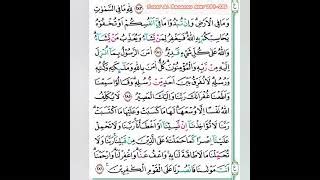 Surat Al Baqarah ayat 284-286
لِلَّهِ مَا فِي السَّمٰوٰتِ
وَمَا فِي الْاَرْضِ وَاِنْ تُبْدُوْا مَا فِيْٓ اَنْفُسِكُمْ اَوْ تُخْفُوْهُ
يُحَاسِبْكُمْ بِهِ اللّٰهُ فَيَغْفِرُ لِمَنْ يَّشَاۤءُ وَيُعَذِّبُ مَنْ يَّشَاۤءُ
وَاللّٰهُ عَلٰى كُلِّ شَيْءٍ قَدِيْرٌ ٢٨٤ اٰمَنَ الرَّسُوْلُ بِمَآ اُنْزِلَ
اِلَيْهِ مِنْ رَّبِّهٖ وَالْمُؤْمِنُوْنَ كُلٌّ اٰمَنَ بِاللّٰهِ وَمَلٰۤىِٕكَتِهٖ وَكُتُبِهٖ
وَرُسُلِهٖ لَا نُفَرِّقُ بَيْنَ اَحَدٍ مِّنْ رُّسُلِهٖ وَقَالُوْا سَمِعْنَا
وَاَطَعْنَا غُفْرَانَكَ رَبَّنَا وَاِلَيْكَ الْمَصِيْرُ ٢٨٥ لَا يُكَلِّفُ
اللّٰهُ نَفْسًا اِلَّا وُسْعَهَا لَهَا مَا كَسَبَتْ وَعَلَيْهَا مَا اكْتَسَبَتْ
رَبَّنَا لَا تُؤَاخِذْنَآ اِنْ نَّسِيْنَآ اَوْ اَخْطَأْنَا رَبَّنَا وَلَا تَحْمِلْ
عَلَيْنَآ اِصْرًا كَمَا حَمَلْتَهٗ عَلَى الَّذِيْنَ مِنْ قَبْلِنَا رَبَّنَا وَلَا
تُحَمِّلْنَا مَا لَا طَاقَةَ لَنَا بِهٖ وَاعْفُ عَنَّا وَاغْفِرْ لَنَا وَارْحَمْنَا
اَنْتَ مَوْلٰىنَا فَانْصُرْنَا عَلَى الْقَوْمِ الْكٰفِرِيْنَ ٢٨٦